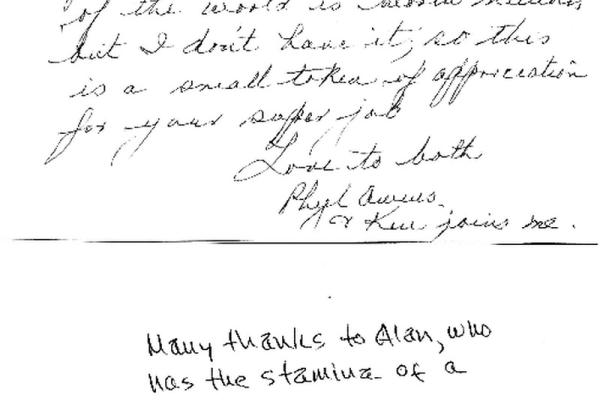 of the world is
but I don't have it, so this
is a small token of appreciation
for your super job
Love to both
Phyl Owens
& Ken joins me.
Many thanks to Alan, who
has the stamina of a